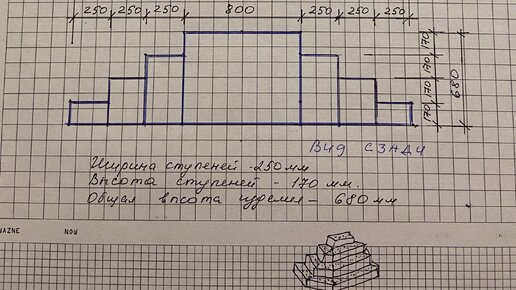 250 250 250 800 250 250 250
170 170 170 170 680
ВИД СЗАДИ
Ширина ступеней - 250 мм
Высота ступеней - 170 мм.
Общая высота изделия - 680 мм
WAŻNE NOW